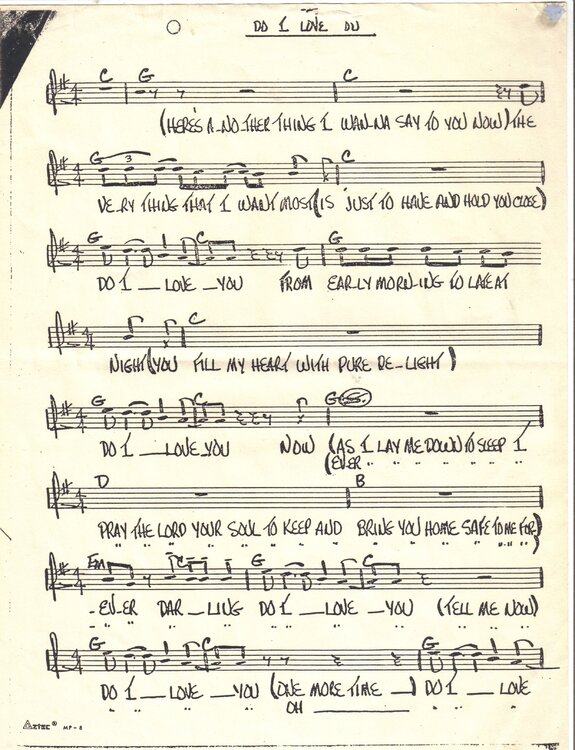 DO I LOVE OU
C G C
(HERE'S A-NO THER THING I WAN-NA SAY TO YOU NOW) THE
G 3 C
VE-RY THING THAT I WANT MOST (IS JUST TO HAVE AND HOLD YOU CLOSE)
G C G
DO I — LOVE — YOU FROM EAR-LY MORN-ING TO LATE AT
C
NIGHT (YOU FILL MY HEART WITH PURE DE-LIGHT)
G C G
DO I — LOVE YOU NOW (AS I LAY ME DOWN TO SLEEP I
(EVER " " " " " "
D B
PRAY THE LORD YOUR SOUL TO KEEP AND BRING YOU HOME SAFE TO ME FOR)
" " " " " " " " " " " " "
Em C G C
-EV-ER DAR-LING DO I — LOVE — YOU (TELL ME NOW)
" " " " " " " "
G C G
DO I — LOVE — YOU (ONE MORE TIME —) DO I — LOVE
" " " " OH — " " "
AZTEC® MP-8